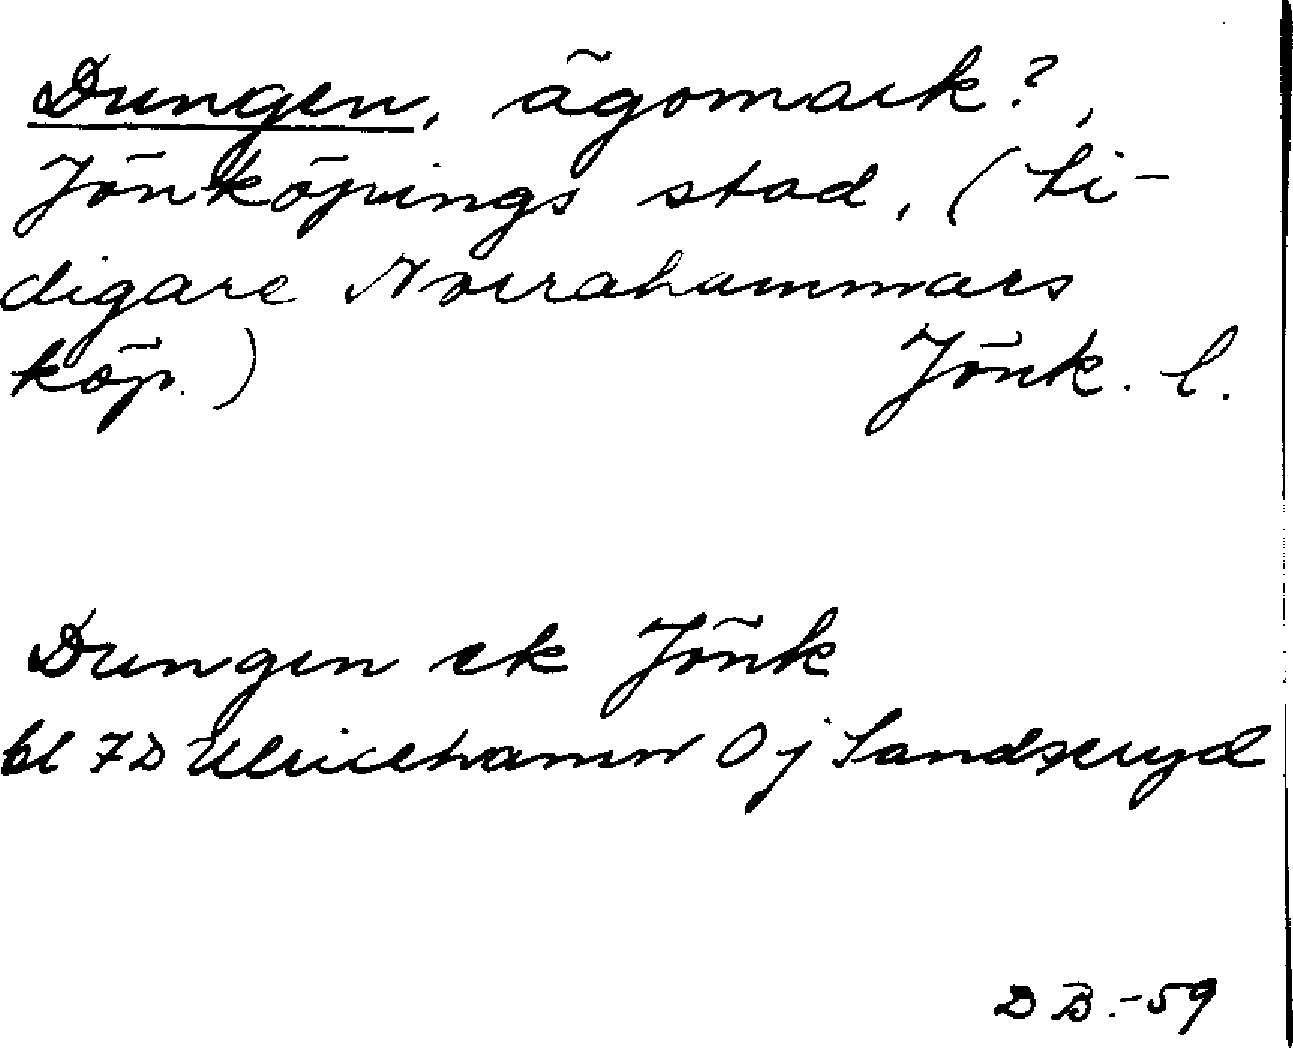 Dungen, ägomark?,
Jönköpings stad, (ti-
digare Norrahammars
köp.) Jönk. l.
Dungen ek Jönk
bl 7D Ulricehamn 0 j Sandseryd
D B.-59